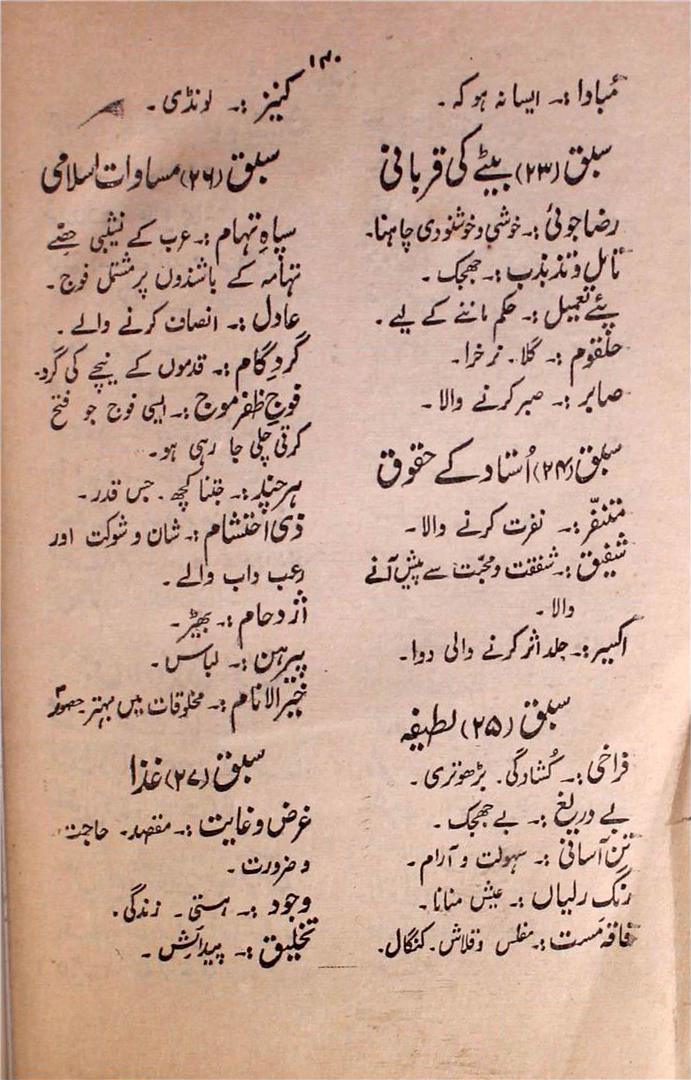 ۱۴۰
مُبادا :۔ ایسا نہ ہو کہ ۔
سبق (۲۳) بیٹے کی قربانی
رضا جوئی :۔ خوشی و خوشنودی چاہنا۔
تامل و تذبذب :۔ جھجک ۔
پئے تعمیل :۔ حکم ماننے کے لیے ۔
حلقوم :۔ گلا ۔ نرخرا ۔
صابر :۔ صبر کرنے والا ۔
سبق (۲۴) اُستاد کے حقوق
متنفّر :۔ نفرت کرنے والا ۔
شفیق :۔ شفقت و محبّت سے پیش آنے
والا ۔
اکسیر :۔ جلد اثر کرنے والی دوا ۔
سبق (۲۵) لطیفہ
فراخی :۔ کُشادگی ۔ بڑھوتری ۔
بے دریغ :۔ بے جھجک ۔
تن آسانی :۔ سہولت و آرام ۔
رنگ رلیاں :۔ عیش منانا ۔
فاقہ مَست :۔ مفلس و قلاش ۔ کنگال ۔
کنیز :۔ لونڈی ۔
سبق (۲۶) مساوات اسلامی
سپاہِ تہام :۔ عرب کے نشیبی حصّے
تہامہ کے باشندوں پر مشتمل فوج ۔
عادل :۔ انصاف کرنے والے ۔
گردِ گام :۔ قدموں کے نیچے کی گرد ۔
فوجِ ظفر موج :۔ ایسی فوج جو فتح
کرتی چلی جا رہی ہو ۔
ہرچند :۔ جتنا کچھ ۔ جس قدر ۔
ذی احتشام :۔ شان و شوکت اور
رعب داب والے ۔
اژدحام :۔ بھیڑ ۔
پیرہن :۔ لباس ۔
خیر الانام :۔ مخلوقات میں بہتر ۔ حضورؐ
سبق (۲۷) غذا
غرض و غایت :۔ مقصد ۔ حاجت
و ضرورت ۔
وجود :۔ ہستی ۔ زندگی ۔
تخلیق :۔ پیدائش ۔